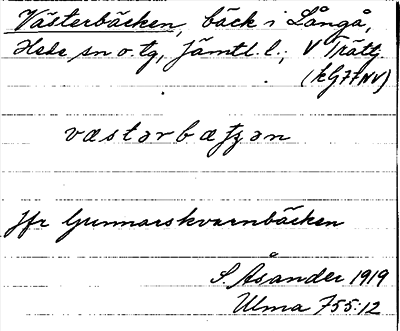 Västerbäcken, bäck i Långå,
Hede sn o. tg, Jämtl. l.; V Trätg.
(kG77NV)
væstərbætʃən
Jfr Gunnarskvarnbäcken
S. Åsander 1919
Ulma 755:12